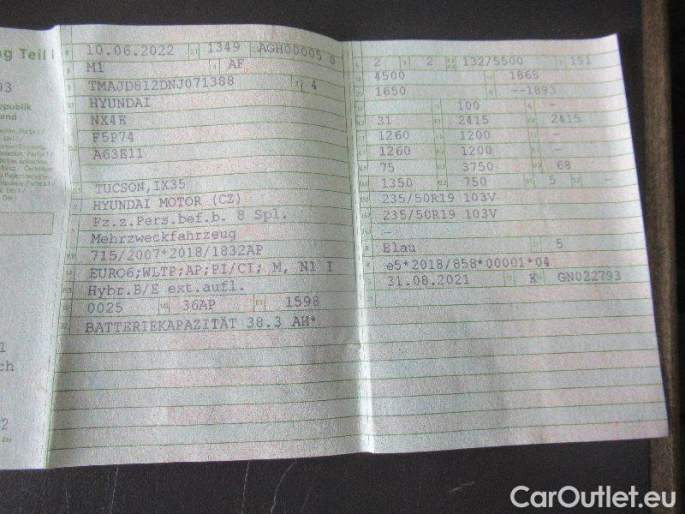 ng Teil I
10.06.2022 1349 AGH00005 0
M1 AF
TMAJD812DNJ071388 4
HYUNDAI
NX4E
F5P74
A63E11
TUCSON,IX35
HYUNDAI MOTOR (CZ)
Fz.z.Pers.bef.b. 8 Spl.
Mehrzweckfahrzeug
715/2007*2018/1832AP
EURO6;WLTP;AP;PI/CI; M, N1 I
Hybr.B/E ext.aufl.
0025 36AP 1598
BATTERIEKAPAZITÄT 38.3 AH*
2 2 132/5500 151
4500 1865
1650 --1893
- 100 -
31 2415 2415
1260 1200 -
1260 1200 -
75 3750 68
1350 750 5 -
235/50R19 103V
235/50R19 103V
-
Blau 5
e5*2018/858*00001*04
31.08.2021 K GN022793
CarOutlet.eu